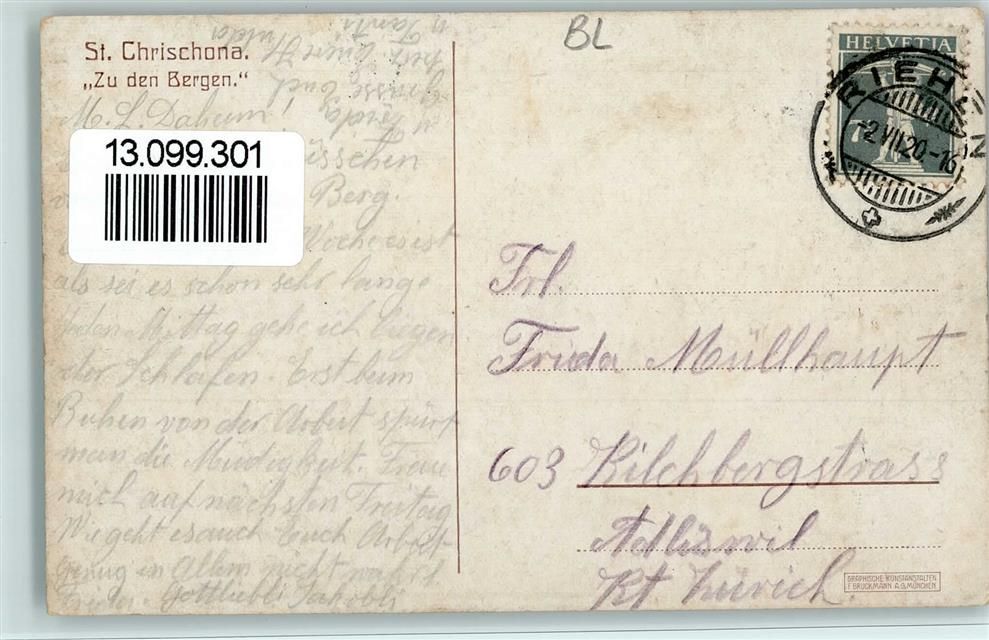 St. Chrischona.
„Zu den Bergen.“
BL
HELVETIA
RIEHEN
2 VII 20-16
7
13.099.301
M. L. Daheim!
Berg.
Woche es ist
als sei es schon sehr lange
Jeden Mittag gehe ich liegen
Schlafen. Erst beim
Ruhen von der Arbeit spürt
man die Müdigkeit. Freu
mich auf nächsten Freitag
Wie geht es auch Euch Arbeit
genug in Allem nicht wahr?
Frl.
Frida Müllhaupt
603 Kilchbergstrass
Adliswil
Kt Zürich.
GRAPHISCHE KUNSTANSTALTEN
F. BRUCKMANN A.G. MÜNCHEN